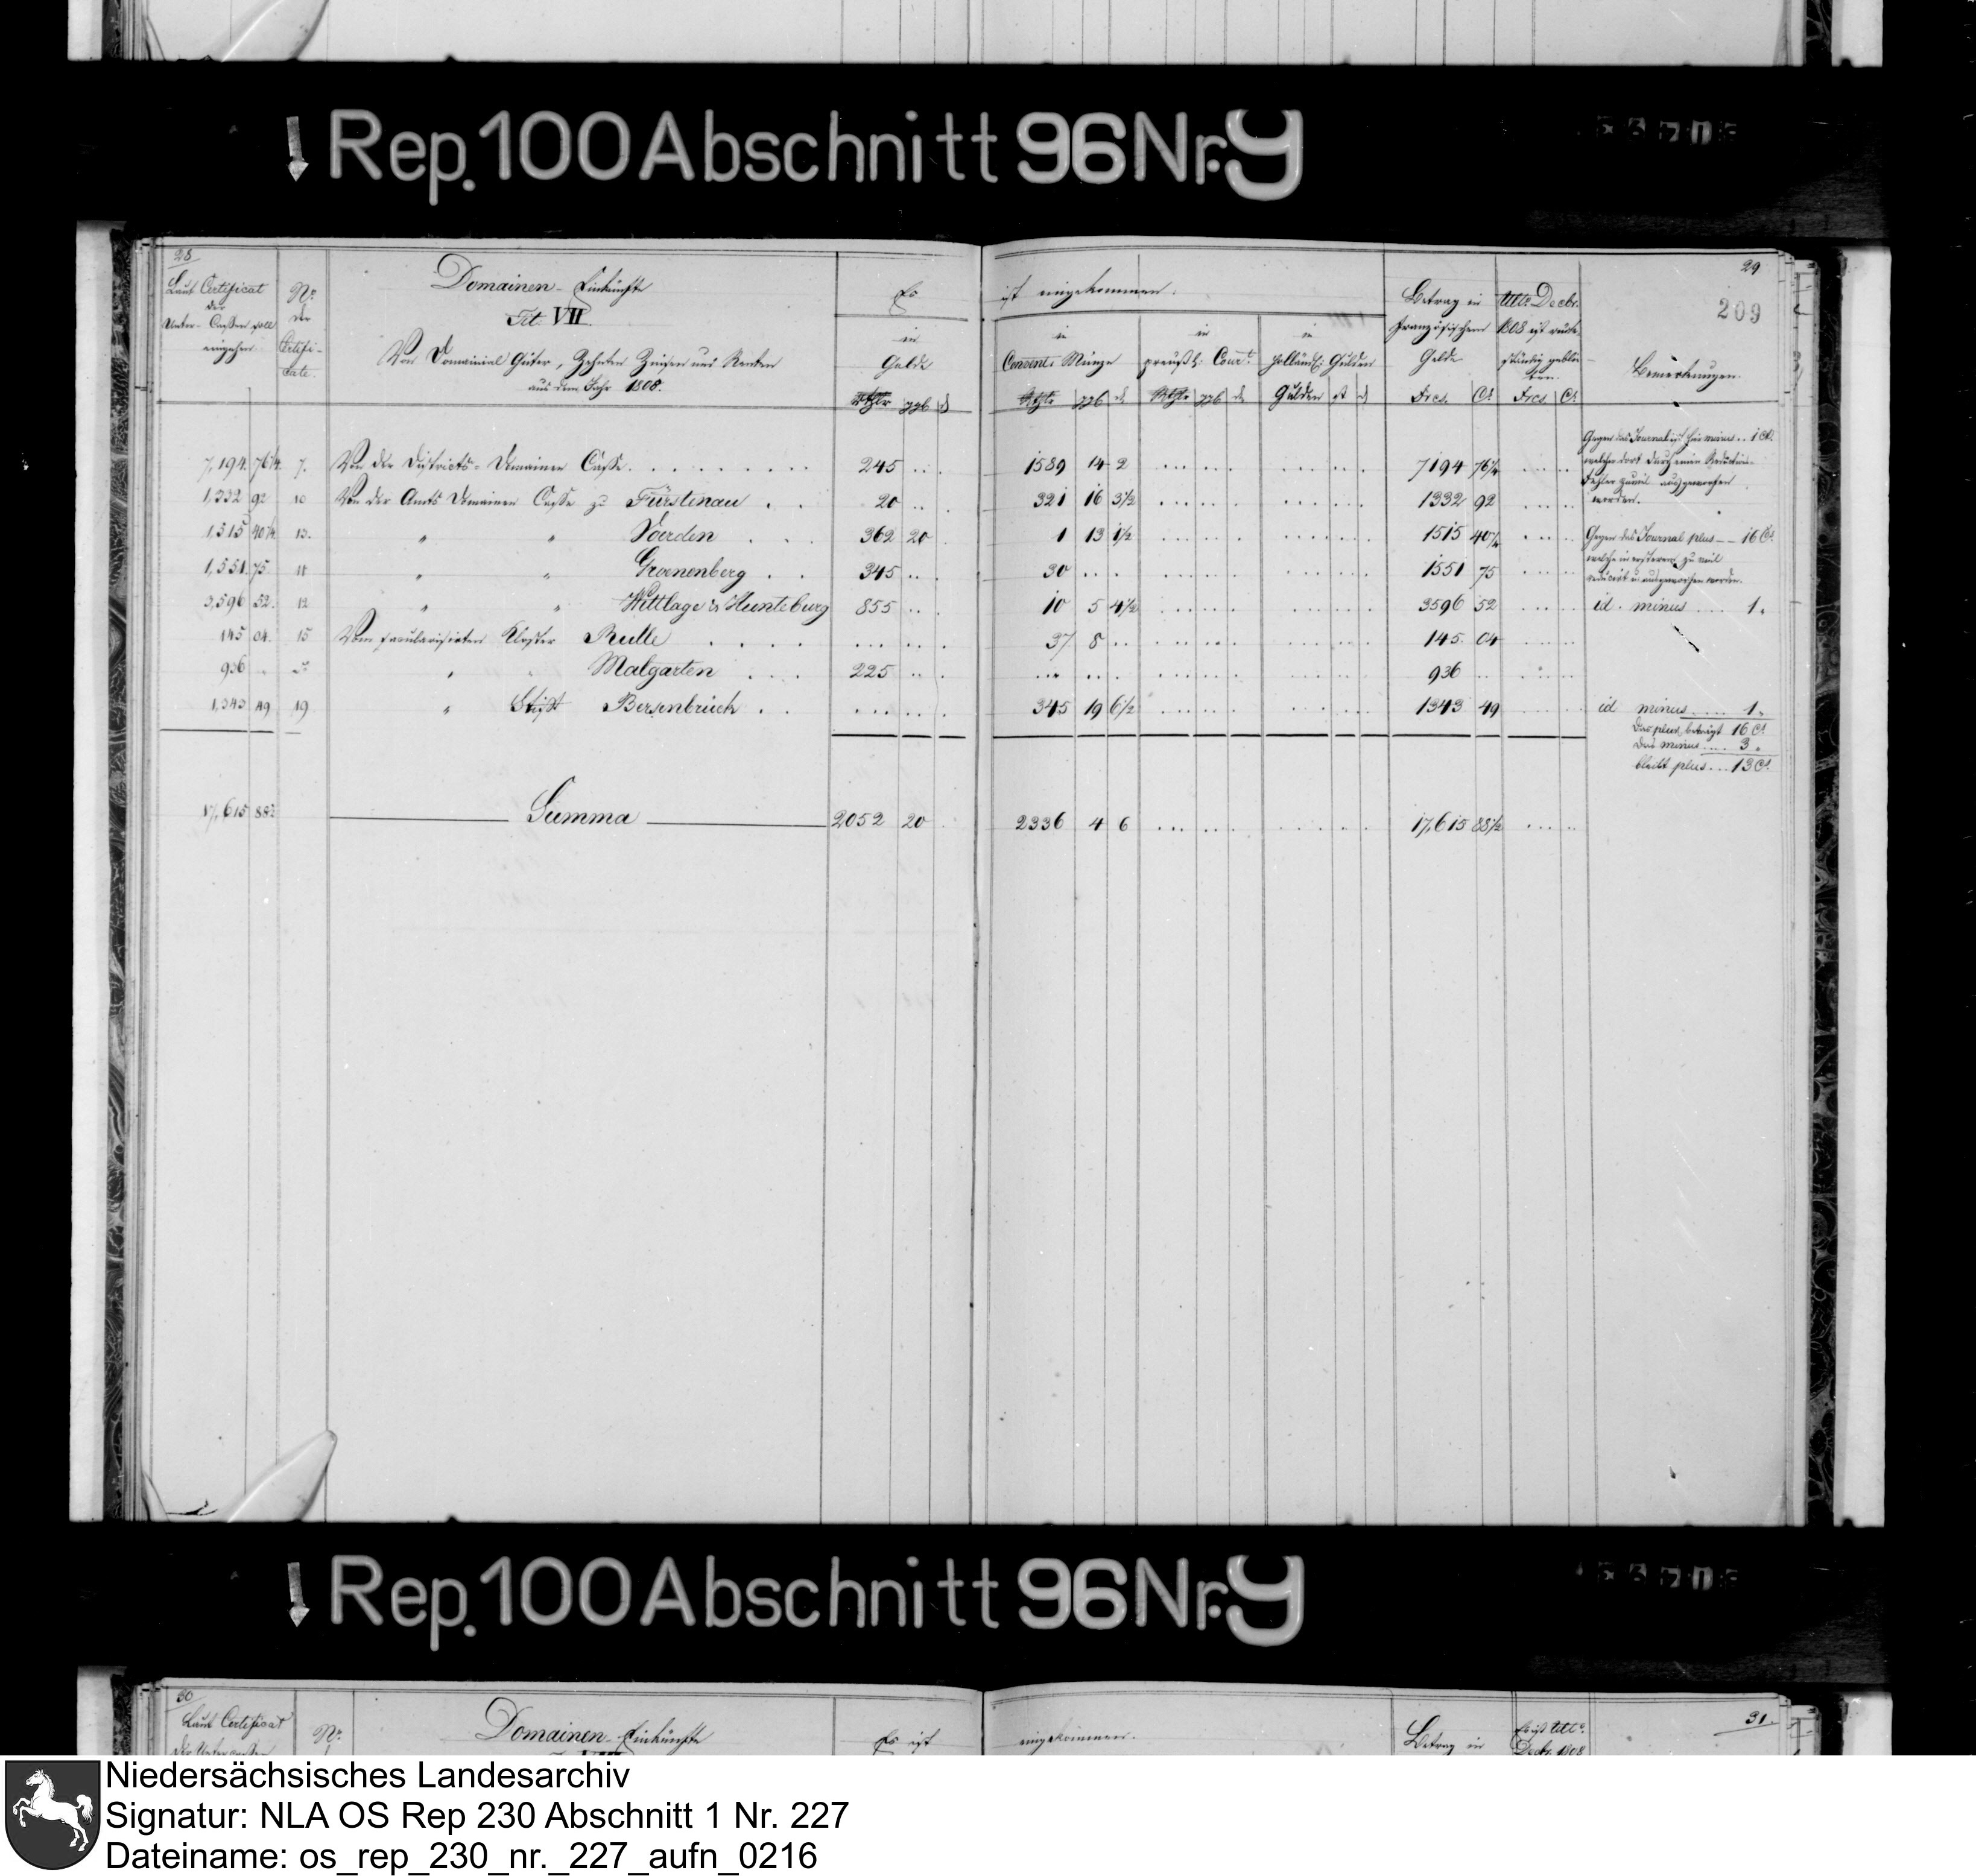 Rep. 100 Abschnitt 96 Nr. 9
28
29
209
Laut Certificat
der
Unter-Cassen soll
eingehen
No.
der
Certifi-
cate.
Domainen-Einkünfte
Tit. VII.
Von Domainial Güter, Zehnten Zinsen und Renten
aus dem Jahr 1808.
Es
ist eingekommen.
in
Golde
Rthlr ggb d
in
Convent. Münze
Rthlr ggb d.
in
preußl. Cour.t
Rthlr ggb d
in
holländ. Gulden
Gulden st d
Betrag in
französischem
Gelde
Frcs. Ct.
Ult. Decbr.
1808 ist rück-
ständig geblie-
ben.
Frcs. Ct.
Bemerkungen.
7,194. 76¼. 7. Von der Districts-Domainen Casse. 245 1589 14 2 7194 76¼
Gegen das Journal ist hier minus .. 1 Ct.
welcher dort durch einen Reductions-
Fehler zuviel ausgeworfen
worden.
1,332 92 10 Von der Amts Domainen Casse zu Fürstenau 20 321 16 3½ 1332 92
1,515 40¼ 13. " " Voerden 362 20 1 13 1½ 1515 40¼
Gegen das Journal plus -- 16 Ct.
welche in ersterem zu viel
reducirt u. ausgeworfen worden.
1,551. 75. 11 " " Groenenberg 345 30 1551 75
3,596 52. 12 " " Wittlage & Hunteburg 855 10 5 4½ 3596 52 id. minus .... 1 "
145 04. 15 Vom secularisirten Kloster Rulle 37 8 145. 04
936 " Malgarten 225 936
1,343 49 19 " Stift Bersenbrück 345 19 6½ 1343 49 id minus .... 1 "
Das plus beträgt 16 Ct.
Das minus .... 3 "
bleibt plus ... 13 Ct.
17,615 88½ Summa 2052 20 2336 4 6 17,615 88½
Rep. 100 Abschnitt 96 Nr. 9
30
31.
Laut Certificat
der Untercassen
No.
Domainen-Einkünfte
Es ist
eingekommen.
Betrag in
Es ist Ult.
Decbr. 1808
Niedersächsisches Landesarchiv
Signatur: NLA OS Rep 230 Abschnitt 1 Nr. 227
Dateiname: os_rep_230_nr._227_aufn_0216